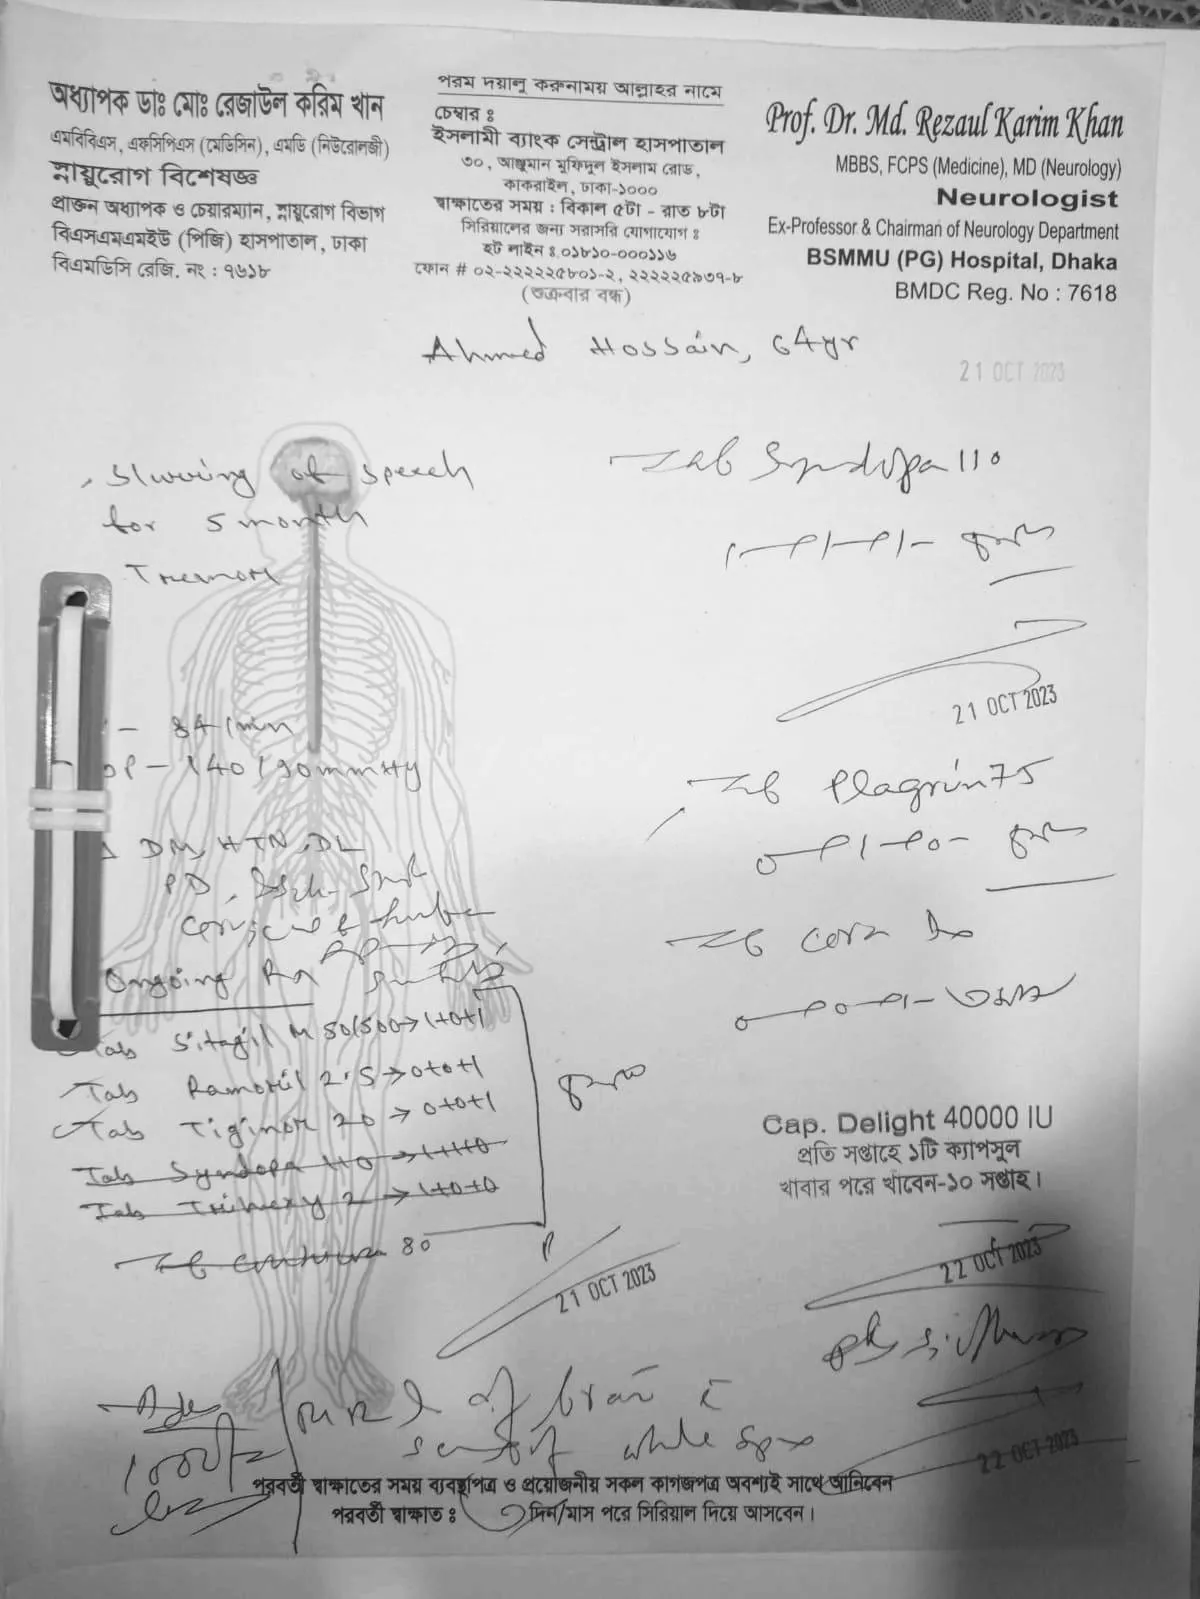 অধ্যাপক ডাঃ মোঃ রেজাউল করিম খান
এমবিবিএস, এফসিপিএস (মেডিসিন), এমডি (নিউরোলজী)
স্নায়ুরোগ বিশেষজ্ঞ
প্রাক্তন অধ্যাপক ও চেয়ারম্যান, স্নায়ুরোগ বিভাগ
বিএসএমএমইউ (পিজি) হাসপাতাল, ঢাকা
বিএমডিসি রেজি. নং : ৭৬১৮
পরম দয়ালু করুনাময় আল্লাহর নামে
চেম্বার :
ইসলামী ব্যাংক সেন্ট্রাল হাসপাতাল
৩০, আঞ্জুমান মুফিদুল ইসলাম রোড,
কাকরাইল, ঢাকা-১০০০
স্বাক্ষাতের সময় : বিকাল ৫টা - রাত ৮টা
সিরিয়ালের জন্য সরাসরি যোগাযোগ :
হট লাইন :০১৮১০-০০০১১৬
ফোন # ০২-২২২২২৫৮০১-২, ২২২২২৫৯৩৭-৮
(শুক্রবার বন্ধ)
Prof. Dr. Md. Rezaul Karim Khan
MBBS, FCPS (Medicine), MD (Neurology)
Neurologist
Ex-Professor & Chairman of Neurology Department
BSMMU (PG) Hospital, Dhaka
BMDC Reg. No : 7618
Ahmed Hossain, 64yr
21 OCT 2023
Slurring of speech
for 5 month
Tremor
- 84/min
BP - 140/90mmHg
DM, HTN, DL
PD,
Ongoing Rx
Tab Sitagil M 50/500→1+0+1
Tab Ramoril 2.5→0+0+1
Tab Tiginor 20→0+0+1
Tab Syndopa 110→1+1+0
Tab Trihexy 2→1+0+0
80
21 OCT 2023
Tab Syndopa 110
1-1-1-
21 OCT 2023
Tab Plagrin 75
0-1-0-
Tab
0-0-1-
Cap. Delight 40000 IU
প্রতি সপ্তাহে ১টি ক্যাপসুল
খাবার পরে খাবেন-১০ সপ্তাহ।
22 OCT 2023
22 OCT 2023
MRI of brain
পরবর্তী স্বাক্ষাতের সময় ব্যবস্থাপত্র ও প্রয়োজনীয় সকল কাগজপত্র অবশ্যই সাথে আনিবেন
পরবর্তী স্বাক্ষাত : দিন/মাস পরে সিরিয়াল দিয়ে আসবেন।